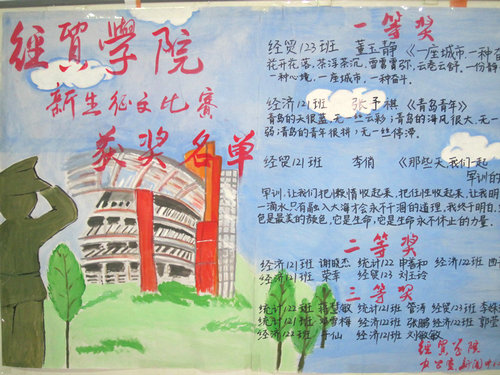 经贸学院
新生征文比赛
获奖名单
一等奖
经贸123班 董玉静 《一座城市,一种奋
花开花落,茶浮茶沉,云卷云舒,一份静
一种心境,一座城市,一种奋斗.
经济121班 张予祺 《青岛青年》
青岛的天很蓝,无一丝云彩;青岛的海风很大,无一
弱;青岛的青年很拼,无一丝停滞.
经贸121班 李俏 《那些天我们一起
军训的
军训,让我们把小傲情收起来,把任性收起来,让我明
一滴水只有融入大海才会永不干涸的道理,我终于明白
色是最美的颜色,它是生命,它是生命永不休止的力量.
二等奖
经济121班 谢晓杰 统计122 申善和 经济122班
经济121班 荣幸 经贸123 刘玉玲
三等奖
统计122班 蒋慧敏 统计121班 管涛 经贸123班 李
统计121班 邓雪梅 经济121班 张鹏 经济122班 郭莹
经济122班 于仙 经济121班 刘敏敏
经贸学院
办公室新闻中心